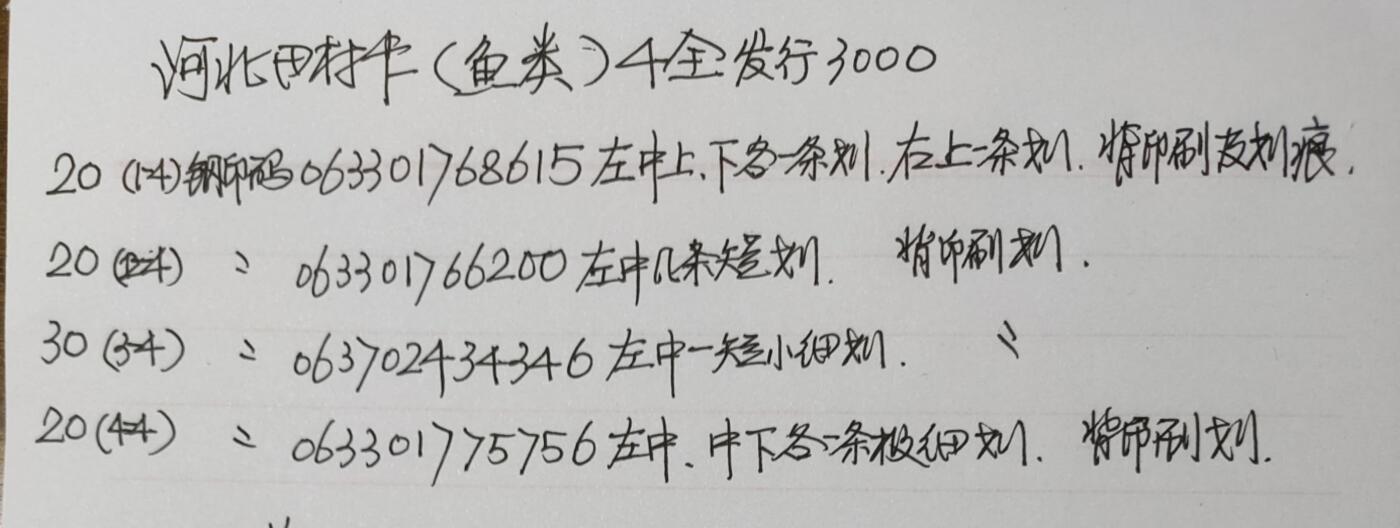 河北田村卡(鱼类)4全发行3000
20(1-4)钢印码063301768615左中上、下各一条划.右上一条划.背印刷及划痕.
20(2-4) 〃 063301766200左中几条短划. 背印刷划.
30(3-4) 〃 063702434346左中一短小细划. 〃
20(4-4) 〃 063301775756左中、中下各一条极细划. 背印刷划.